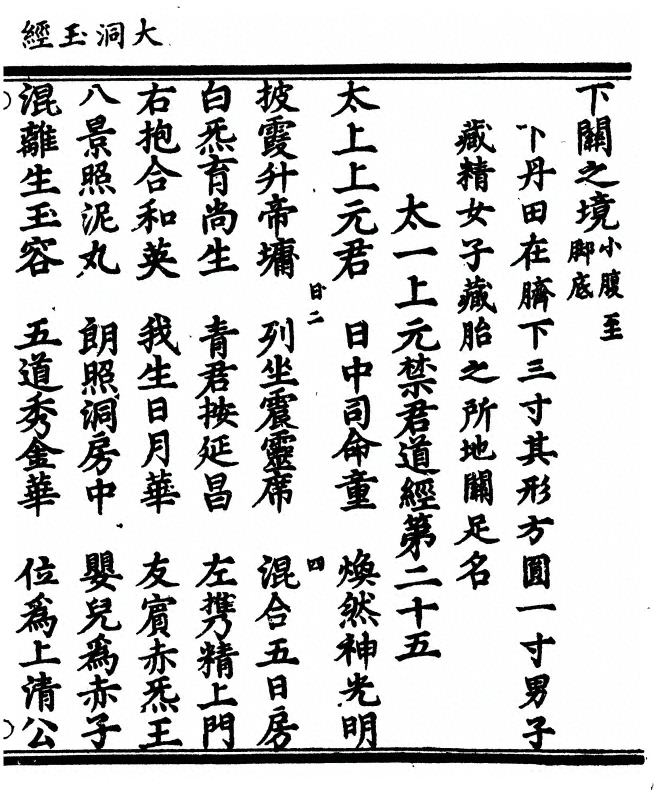 大洞玉經
下關之境小腹至脚底
下丹田在臍下三寸其形方圓一寸男子
藏精女子藏胎之所地關足名
太一上元禁君道經第二十五
太上上元君 日中司命童 煥然神光明
披霞升帝墉 列坐震靈席 混合五日房
日二 四
白炁育尚生 青君按延昌 左携精上門
右抱合和英 我生日月華 友賔赤炁王
八景照泥丸 朗照洞房中 嬰兒爲赤子
混離生玉容 五道秀金華 位爲上清公